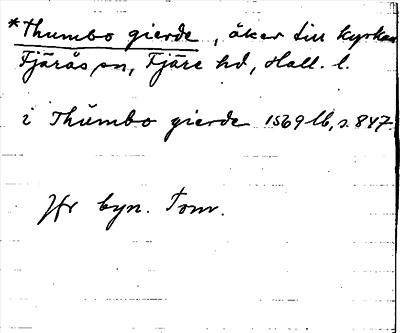 *Thumbo gierde, åker till kyrkan
Fjärås sn, Fjäre hd, Hall. l.
i Thumbo gierde 1569 lb, s. 847.
Jfr byn. Tom.